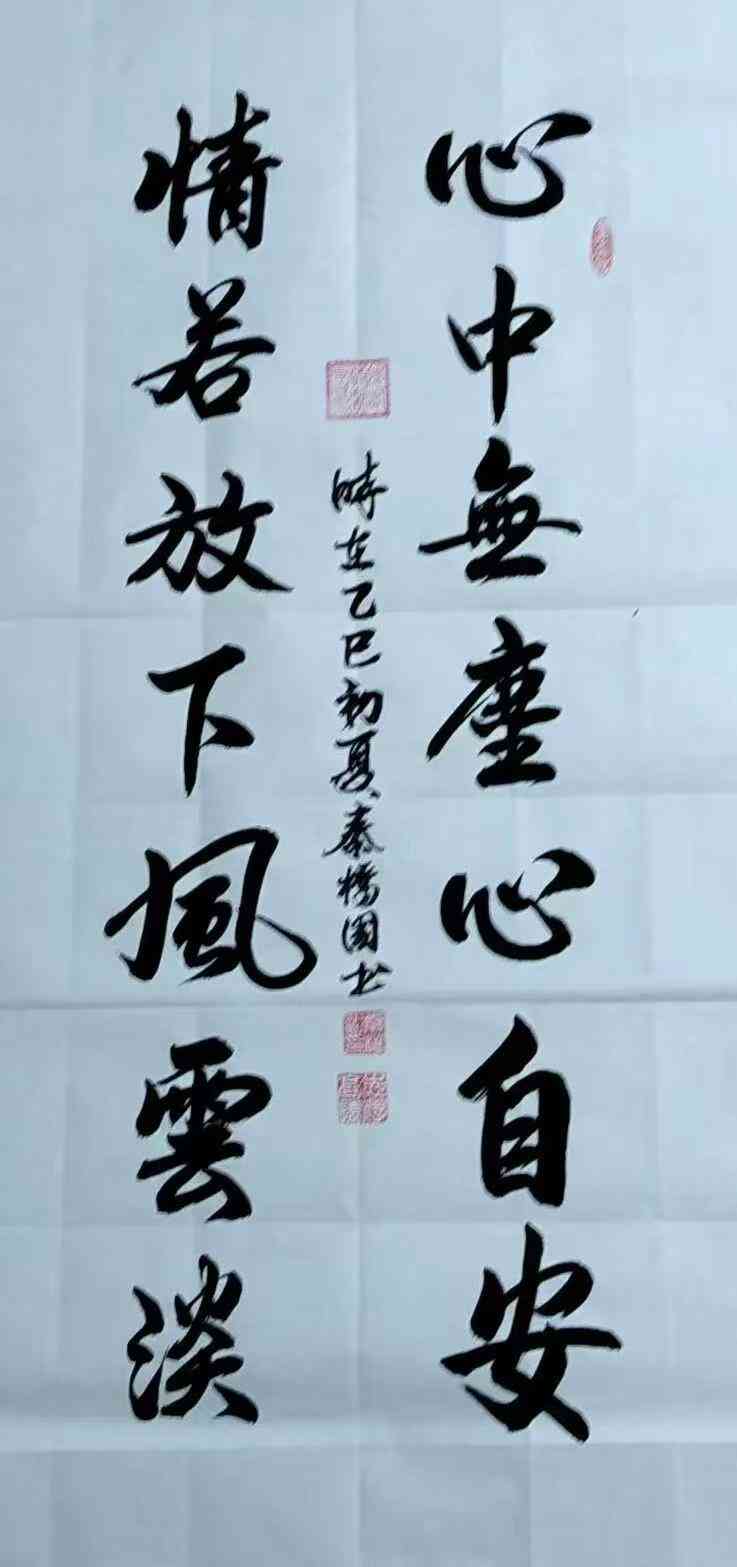 心中無塵心自安
情若放下風雲淡
時在乙巳初夏秦橋園书